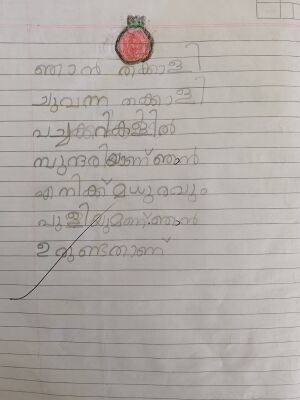 ഞാൻ തക്കാളി
ചുവന്ന തക്കാളി
പച്ചക്കറികളിൽ
സുന്ദരിയാണ് ഞാൻ
എനിക്ക് മധുരവും
പുളിയുമാണ് ഞാൻ
ഉരുണ്ടതാണ്